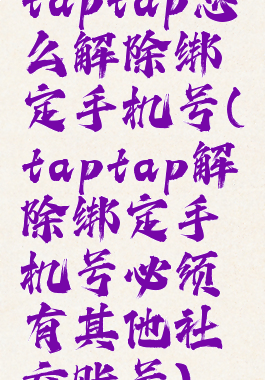 taptap怎
么解除绑
定手机号(
taptap解
除绑定手
机号必须
有其他社
交账号)